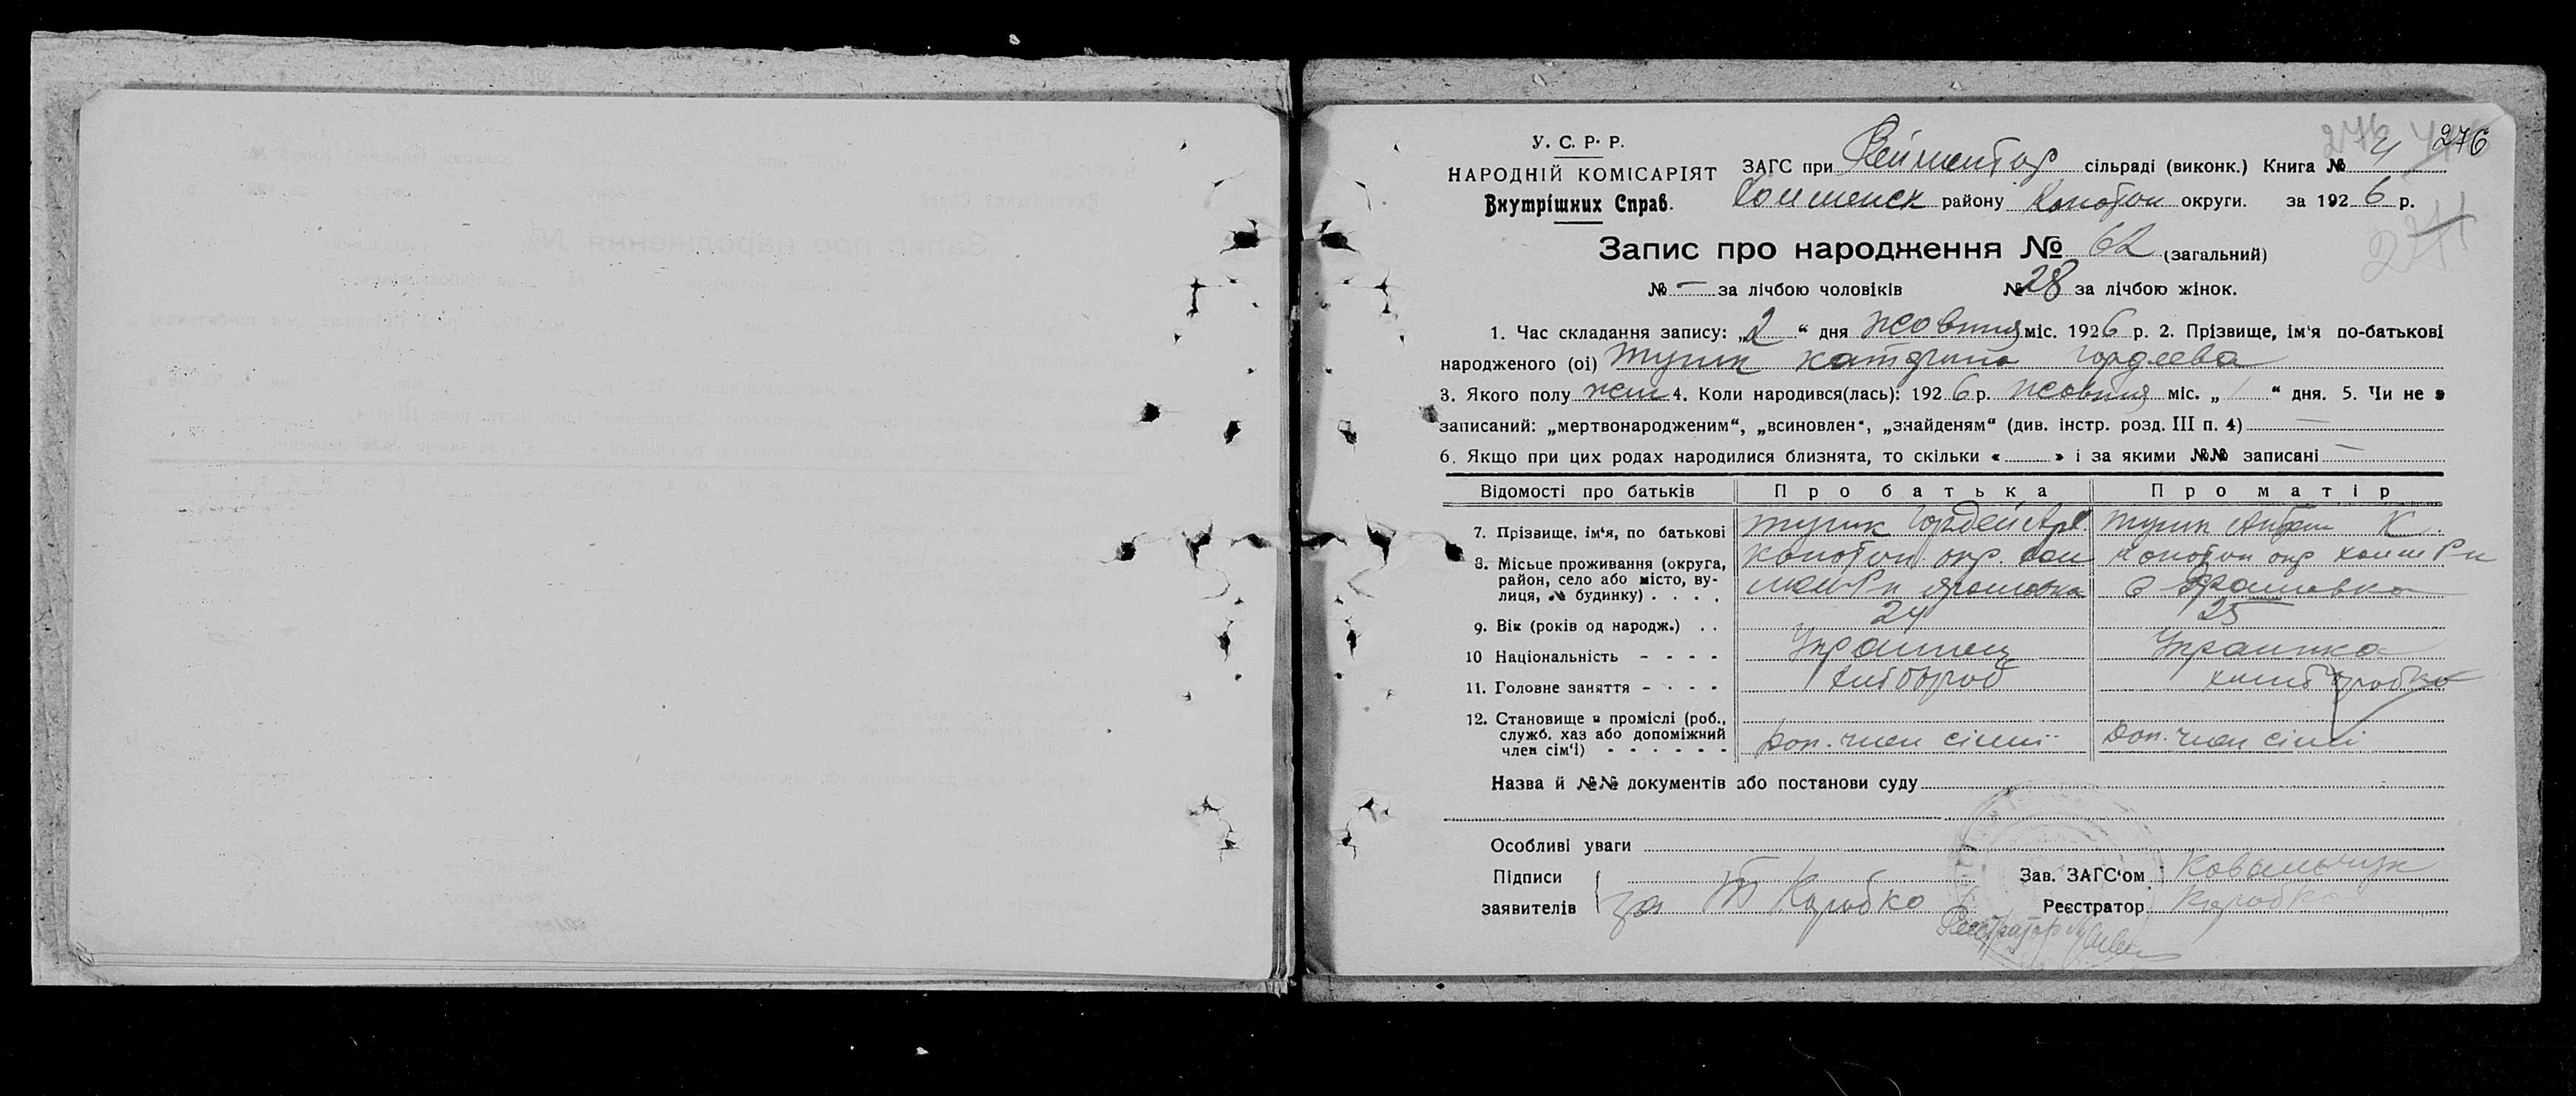 276 276
У. С. Р. Р.
НАРОДНІЙ КОМІСАРІЯТ
Внутрішних Справ.
ЗАГС при Рейментар сільраді (виконк.) Книга № 4
район у Конотоп округи. за 1926 р.
271
Запис про народження № 62 (загальний)
№ — за лічбою чоловіків № 28 за лічбою жінок.
1. Час складання запису: „2“ дня жовтня міс. 1926 р. 2. Прізвище, ім'я по-батькові
народженого (ої) Катерина Гордеева
3. Якого полу жін 4. Коли народився(лась): 1926 р. жовтня міс. „1“ дня. 5. Чи не є
записаний: „мертвонародженим“, „всиновлен“, „знайденям“ (див. інстр. розд. III п. 4) —
6. Якщо при цих родах народилися близнята, то скільки « » і за якими №№ записані —
Відомості про батьків Про батька Про матір
7. Прізвище, ім'я, по батькові Гордей К.
8. Місьце проживання (округа, Конотоп окр. Конотоп окр
район, село або місто, ву-
лиця, № будинку) . . . .
9. Вік (років од народж.) . . 24 25
10 Національність - - - - Украинец Украинка
11. Головне заняття - - - - хлібороб
12. Становище в промислі (роб.,
служб. хаз або допоміжний
член сім'ї) - - - - - - Доп. член сімії Доп. член сімі
Назва й №№ документів або постанови суду
Особливі уваги
Підписи
заявителів за Коробко
Зав. ЗАГС'ом Ковальчук
Реєстратор Коробко
Реєстратор